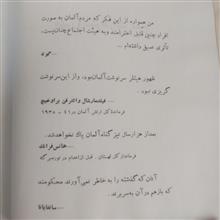 من همواره از این فکر که مردم آلمان به صورت
افراد چنین قابل احترامند و به هیئت اجتماع چنان پست،
تأثری عمیق داشته‌ام ...
گوته
ظهور هیتلر سرنوشت آلمان بود، و از این سرنوشت
گریزی نبود.
فیلدمارشال والتر فن براوخیچ
فرمانده کل ارتش آلمان در ۴۱ - ۱۹۳۸
بعد از هزار سال نیز گناه آلمان پاک نخواهد شد.
هانس فرانک
فرماندار کل لهستان، قبل از اعدام در نورنبرگ
آنان که گذشته را به خاطر نمی‌آورند محکومند
که باز هم در آن به‌سر برند.
سانتایانا